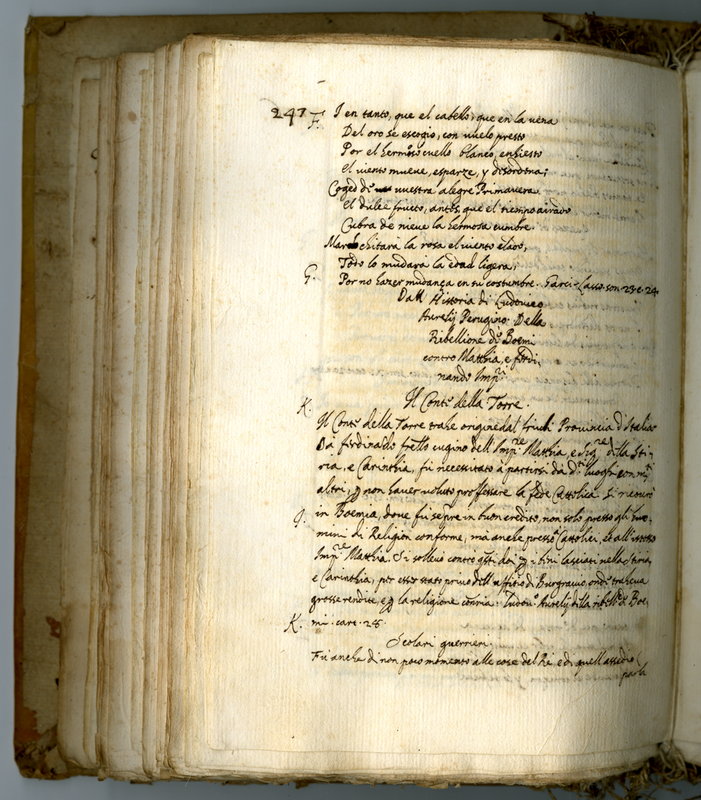 247 F. I en tanto, que el cabello, que en la uena
Del oro se escogio, con vuelo presto
Por el hermoso cuello blanco, enhiesto
el viento mueue, esparze, y disordena;
Coged di vuestra alegre Primauera
el dulce fructo, antes que el tiempo airado
Cubra de nieue la hermosa cumbre
Marchitarà la rosa el viento elado,
Todo lo mudarà la edad ligera,
G. Por no hazer mudança en su costumbre. Garci-Lasso. son. 23. e. 24.
Dall Historia di Ludouico
Aurelij Perugino Della
Ribellione de Boemi
contro Matthia, e ferdi-
nando Impri
K. Il Conte della Torre.
Il Conte della Torre trahe origine dal friuli Prouincia d'Italia
Da ferdinando frello cugino dell'Impre Matthia, e Sigre della Sti-
ria, e Carinthia, fù necessitato à partirsi da di luoghi con mti
altri, p non hauer voluto professare la fede Cattolica. Si ricourò
J. in Boemia, doue fu sepre in buon credito, non solo presso gli huo-
mini di Religion conforme, mà anche presso Cattolici, et all'istesso
Impre Matthia. Si solleuò contro qsti doi p i beni lasciati nella Stiria,
e Carinthia, per esser stato priuo dell'uffitio di Burgrauio, onde traheua
grosse rendite, e p la religione conria. Ludou.o Aurelij dilla ribell.e di Boe-
K. mi. cart. 28.
Scolari guerrieri.
Fù anche di non poco momento alle cose del Rè, e di quell'assedio
parla